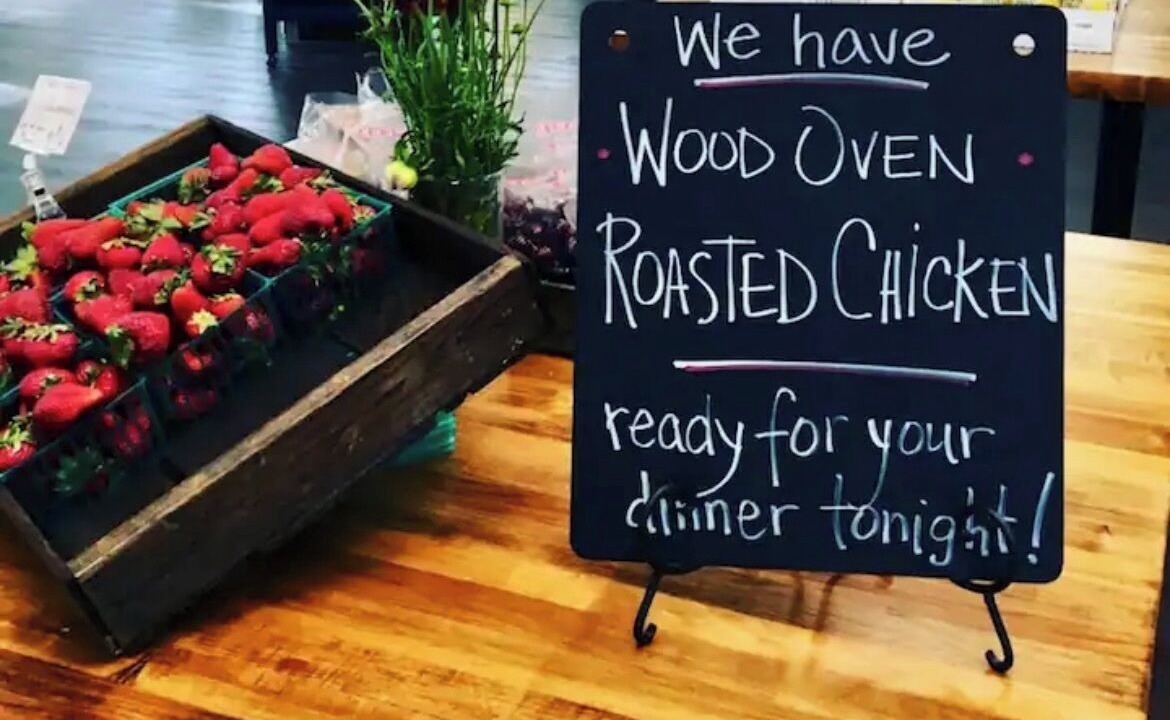 We have
WOOD OVEN
ROASTED CHICKEN
ready for your
dinner tonight!